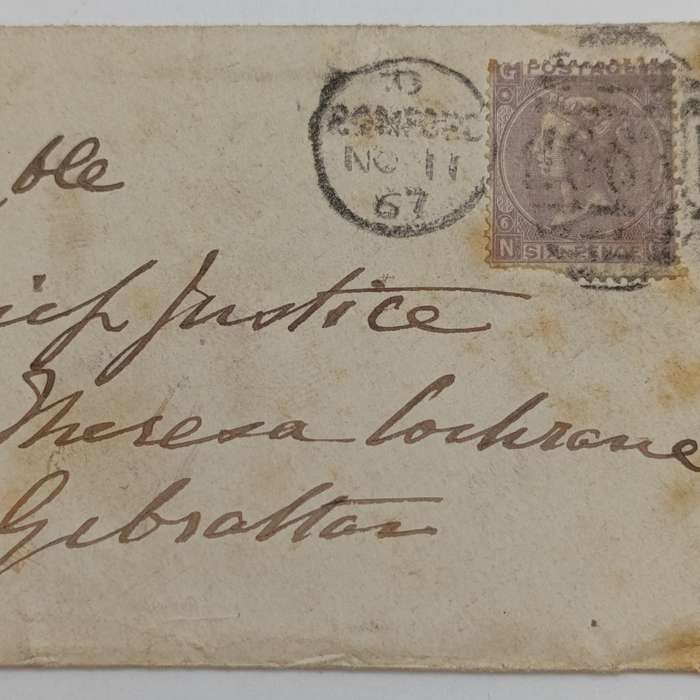 D
ROMFORD
NO 11
67
G POSTAGE
6
N SIX PENCE G
ble
ief Justice
Theresa Cochrane
Gibraltar